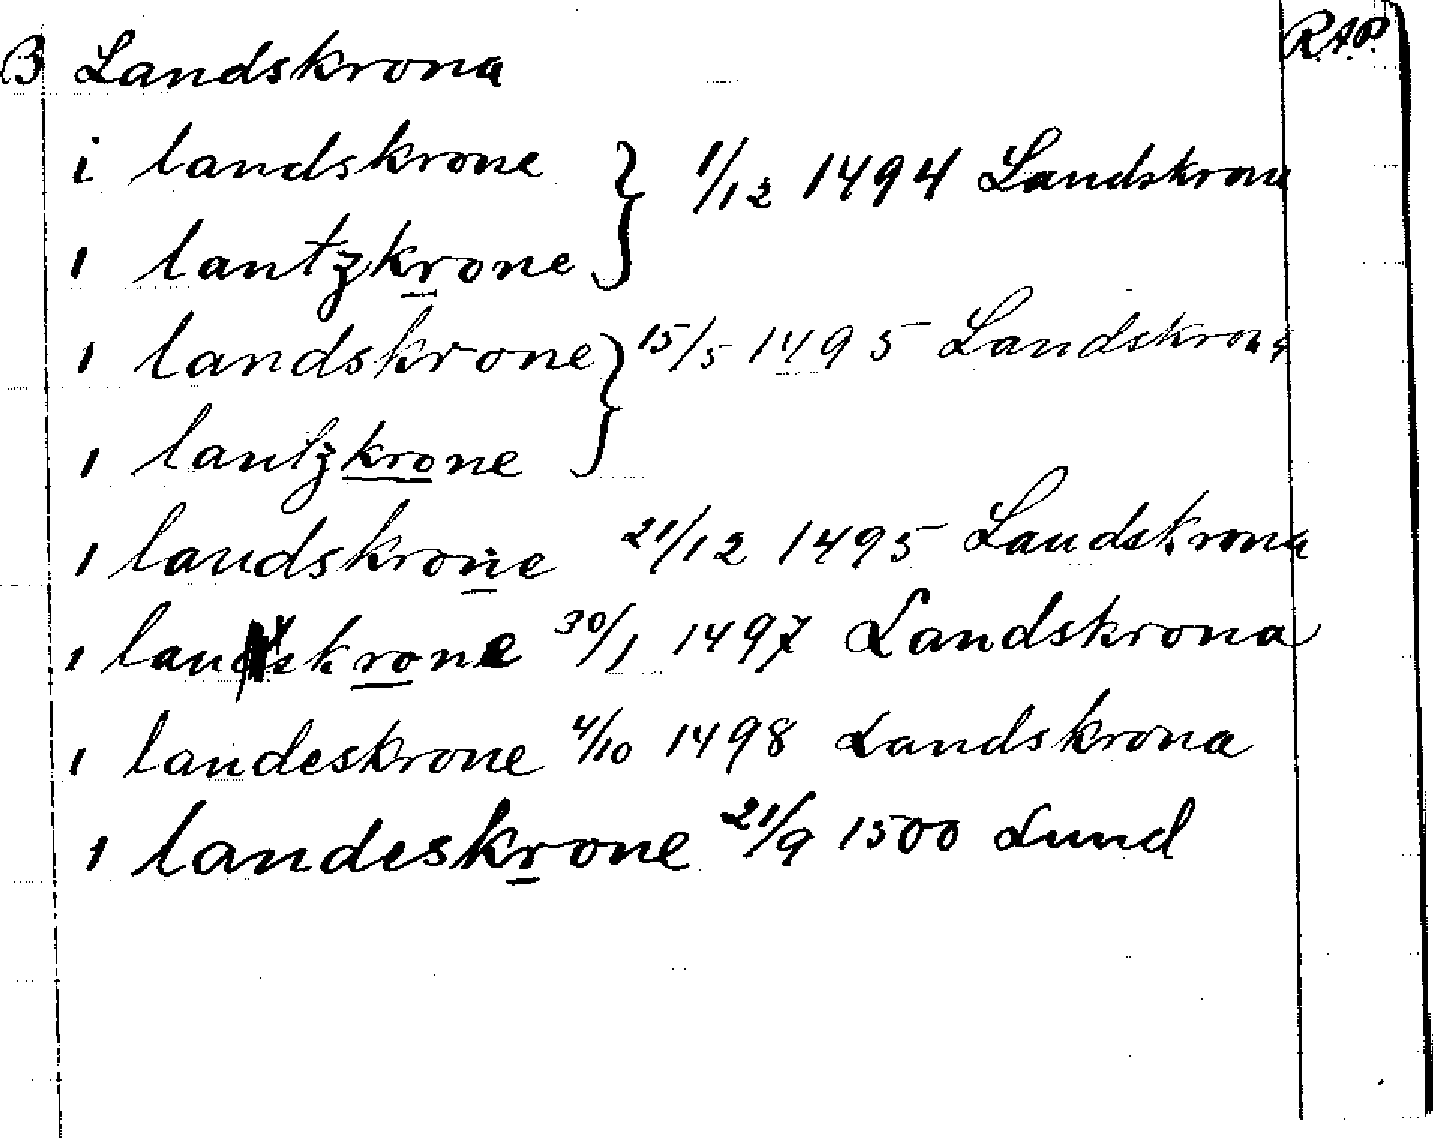 B Landskrona RAP.
i landskrone } 1/12 1494 Landskrona
ı lantzkrone
ı landskrone } 15/5 1495 Landskrona
ı lantzkrone
ı landskrone 21/12 1495 Landskrona
ı 30/1 1497 Landskrona
ı landeskrone 4/10 1498 Landskrona
ı landeskrone 21/9 1500 Lund